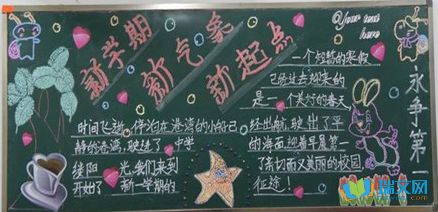 新学期
新气象
新起点
Your text
here
一个短暂的寒假
已经过去迎来的
是一个美好的春天
永争第一
时间飞逝,停泊在港湾的小船已经出航,驶出了平
静的港湾,驶进了
的海面,迎着早晨第一
缕阳光,我们来到了亲切而又美丽的校园
开始了新一学期的征途!
瑞文网